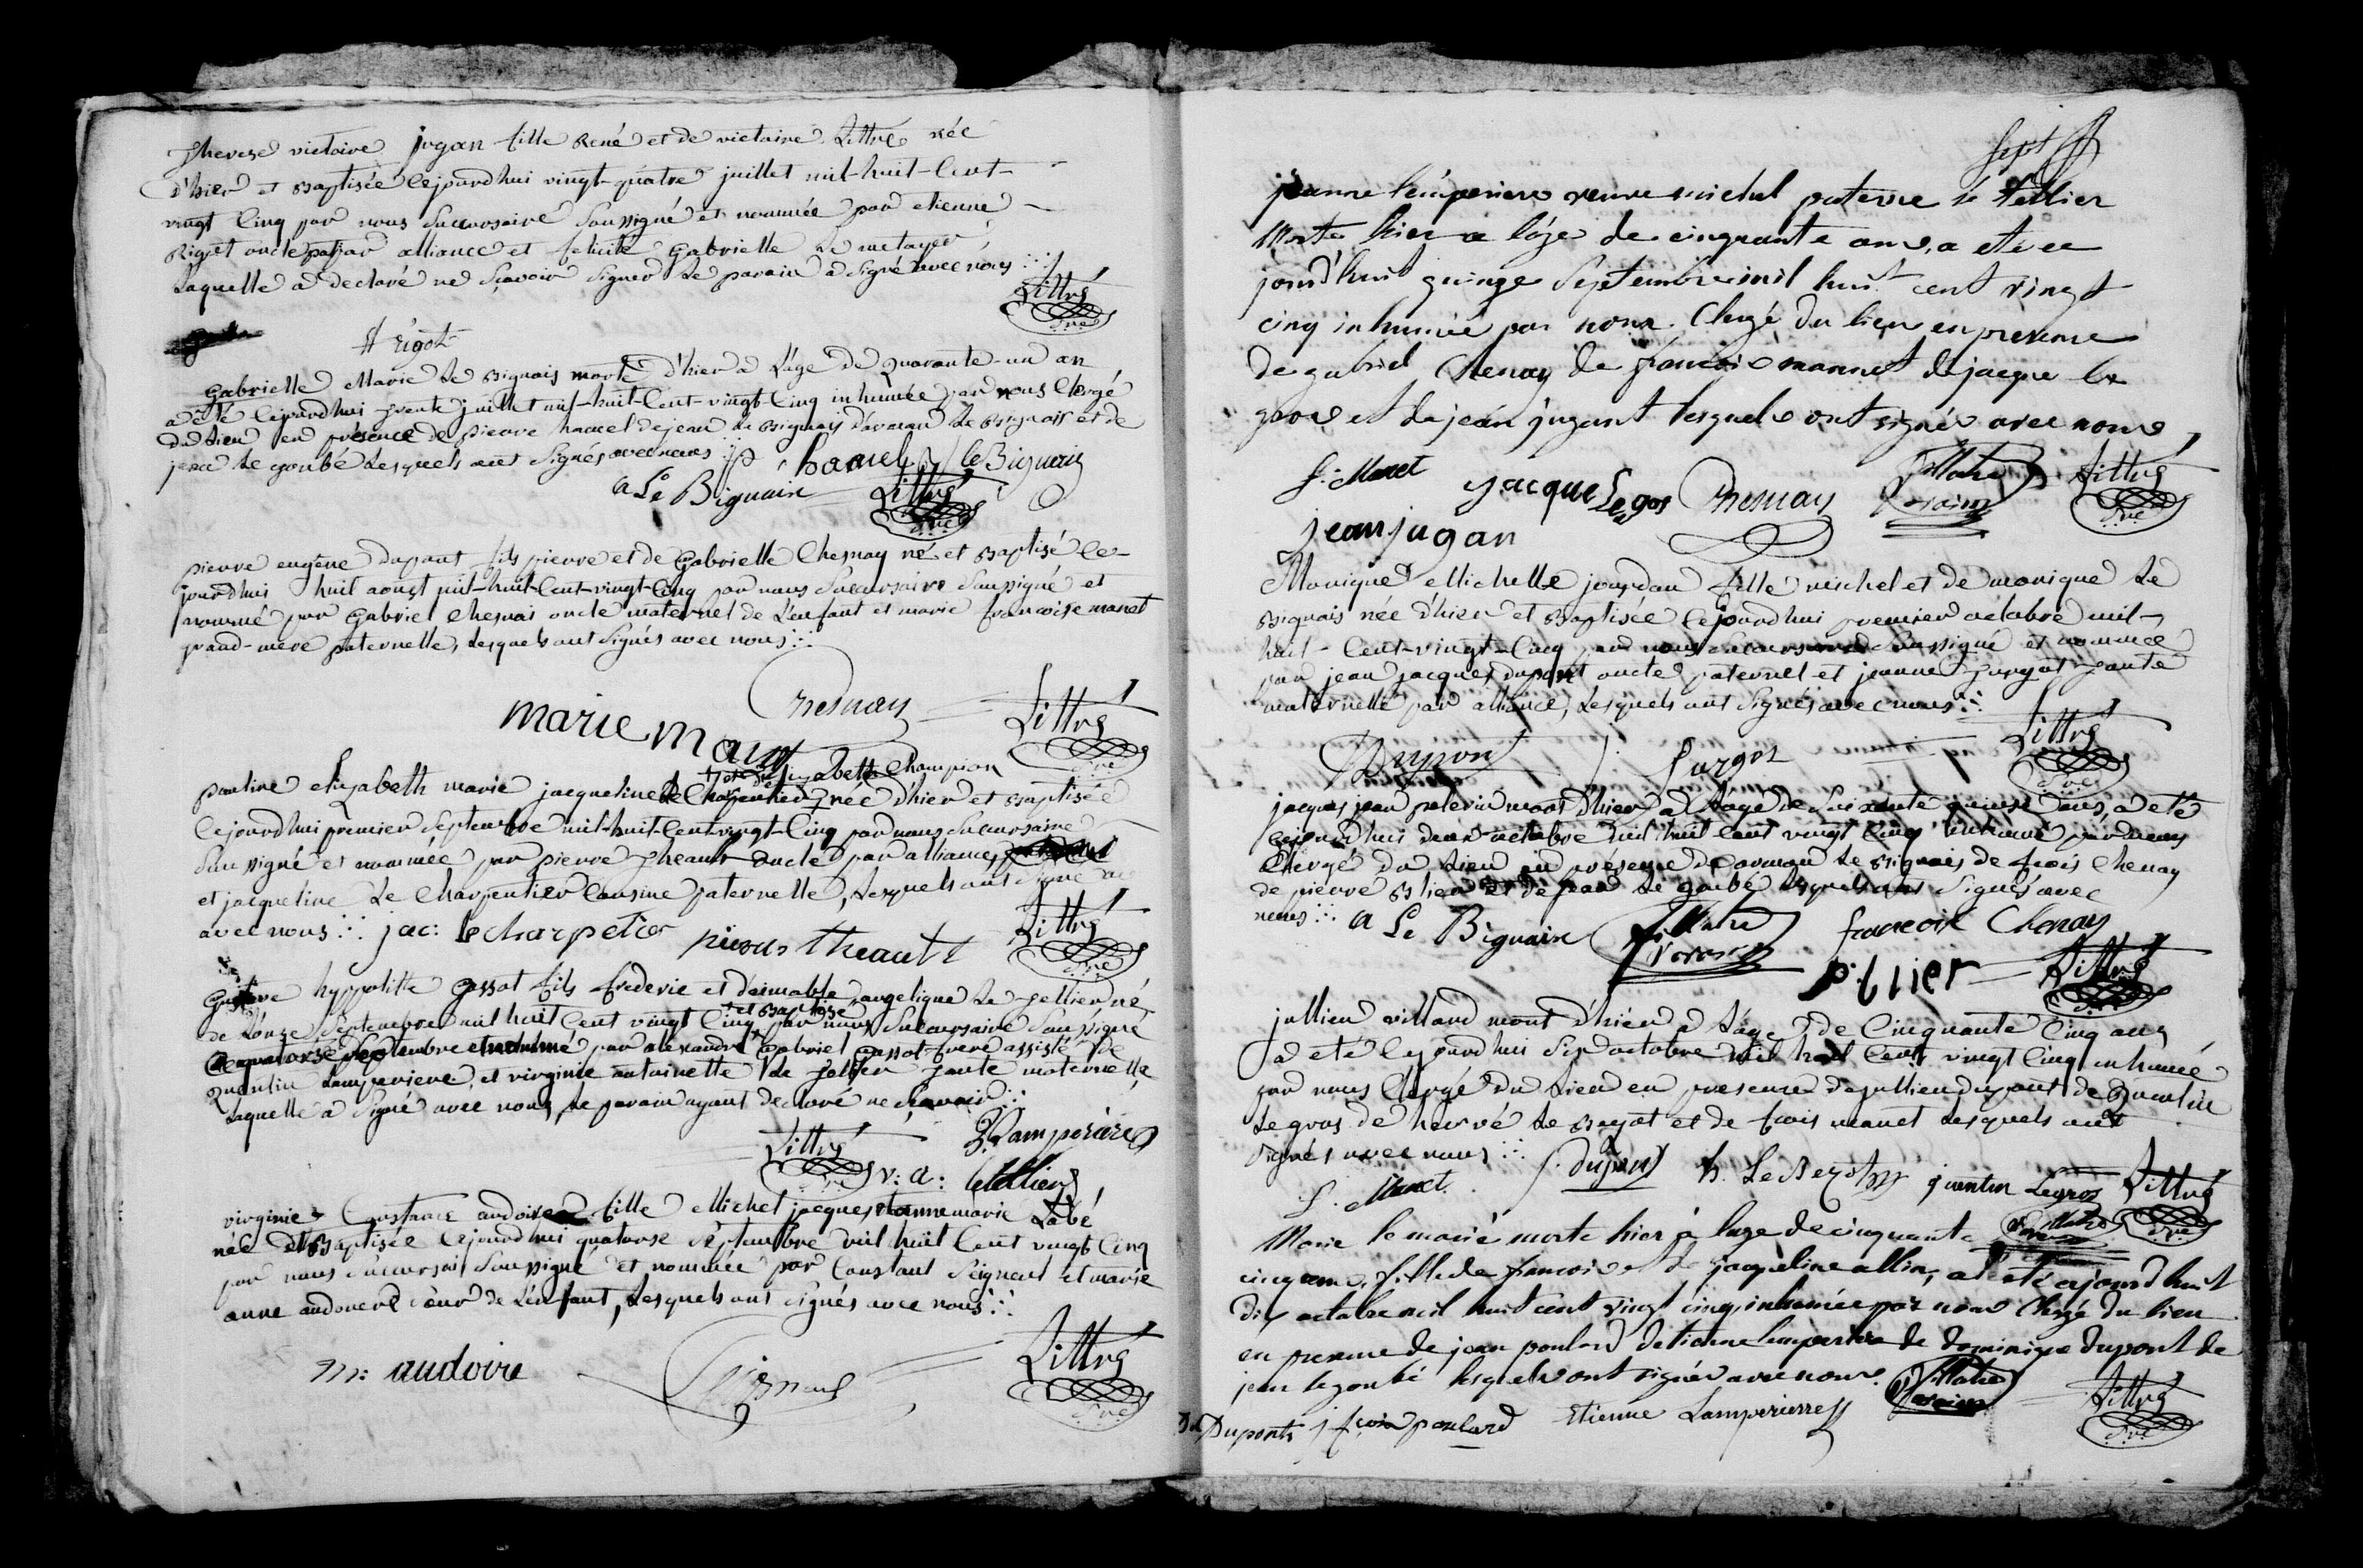 Therese victoire jugan fille René et de victoire Littré née
d'hier et Baptisée cejourdhui vingt-quatre juillet mil-huit-cent-
vingt cinq par nous Succursaire Soussigné et nommée par etienne
Rigot oncle par alliance et felicité Gabrielle Le metayer
Laquelle a declaré ne Sçavoir Signer Le parain a Signé avec nous
Littré
E Rigot
Gabrielle Marie Le Bignais morte d'hier a L'âge de Quarante-un an
a été cejourdhui trente juillet mil-huit-cent-vingt-cinq inhumée par nous Clergé
du Lieu en présence de pierre hamel de jean Le Bignais d'armand Le Bignais et de
jean Le goubé Lesquels ont Signés avec nous
p. hamel j le Bignais
a Le Bignaix Littré
pierre eugène dupont fils pierre et de Gabrielle Chesnay né et Baptisé ce-
jourdhui huit aougt mil-huit-cent-vingt-cinq par nous Succursaire Soussigné et
nommé par Gabriel Chesnais oncle maternel de L'enfant et marie francoise manet
grand-mère paternelle, Lesquels ont Signés avec nous
Chesnay
marie manet Littré
et de Elizabeth Champion
pauline elizabeth marie jacqueline Le Charpentier née d'hier et Baptisée
Cejourdhui premier Septembre mil-huit-Cent-vingt-Cinq par nous Succursaire
Soussigné et nommée par pierre theault oncle par alliance
et jacqueline Le Charpentier Cousine paternelle, Lesquels ont Signé
avec nous jac: le charpetier pierre theault Littré
Gustave hyppolitte gassot fils frederic et d'aimable angelique Le tellier né
et Baptisé
de L'onze Septembre mil huit Cent vingt Cinq par nous Succursaire Soussigné
Le quatorze Septembre et nommé par alexandre Gabriel gassot frere assisté de
quentin Lamperiere, et virginie antoinette Le tellier tante maternelle
Laquelle a Signé avec nous, Le parain ayant declaré ne Scavoir
Littré Q. Lamperiere
v: a: letellier
virginie Constance audoire fille Michel jacques et anne marie Labé
née et Baptisée Cejourdhui quatorze Septembre mil huit Cent vingt Cinq
par nous Succursaire Soussigné et nommée par Constant Seigneul et marie
anne audoire Sœur de L'enfant, Lesquels ont Signés avec nous
m: audoire Seigneul Littré
Sept
jeanne lempèriere veuve michel paterne le tellier
Morte hier a l'âge de cinquante ans, a été ce
jourd'huit quinze Septembre mil huit cent vingt
cinq inhumée par nous Clergé du lieu en presence
de gabriel Chenay de francois mannet de jacque le
gros et de jean jugant lesquels ont signés avec nous
f. Manet jacque Legos Chesnay Littré
jean jugan
Monique Michelle jourdan fille michel et de monique Le
Bignais née d'hier et Baptisée Cejourdhui premier octobre mil-
huit-Cent-vingt-Cinq par nous Succursaire Soussigné et nommée
par jean jacques dupont oncle paternel et jeanne turgot tante
maternelle par alliance, Lesquels ont Signés avec nous
Dupont j. turgot Littré
jacques jean paterin mort d'hier a L'âge de Soixante quinze ans, a été
cejourdhui deux octobre mil huit Cent vingt Cinq inhumé par nous
Clergé du Lieu en présence d'armand Le Bignais de frois Chenay
de pierre Blier et de jean Le goubé Lesquels ont Signés avec
nous a Le Bignaix francois Chenay
p. blier Littré
jullien villard mort d'hier a L'âge de Cinquante Cinq ans
a été Cejourdhui Six octobre mil huit Cent vingt Cinq inhumé
par nous Clergé du Lieu en presence de jullien dupont de Quentin
Legros de hervé Le Bezot et de frois manet Lesquels ont
Signés avec nous
f. Manet j. dupont h. LeBezot quentin Legros Littré
Marie le marié morte hier à l'age de cinquante
cinq ans, fille de francois et de jacqueline allin, a été cejourd'huit
dix octobre mil huit cent vingt cinq, inhumée par nous Clergé du lieu
en presence de jean poulard d'etienne lamperiere de dominique dupont de
jean legoubé lesquels ont signés avec nous.
Dupont j fçois poulard Etienne Lamperierre Littré